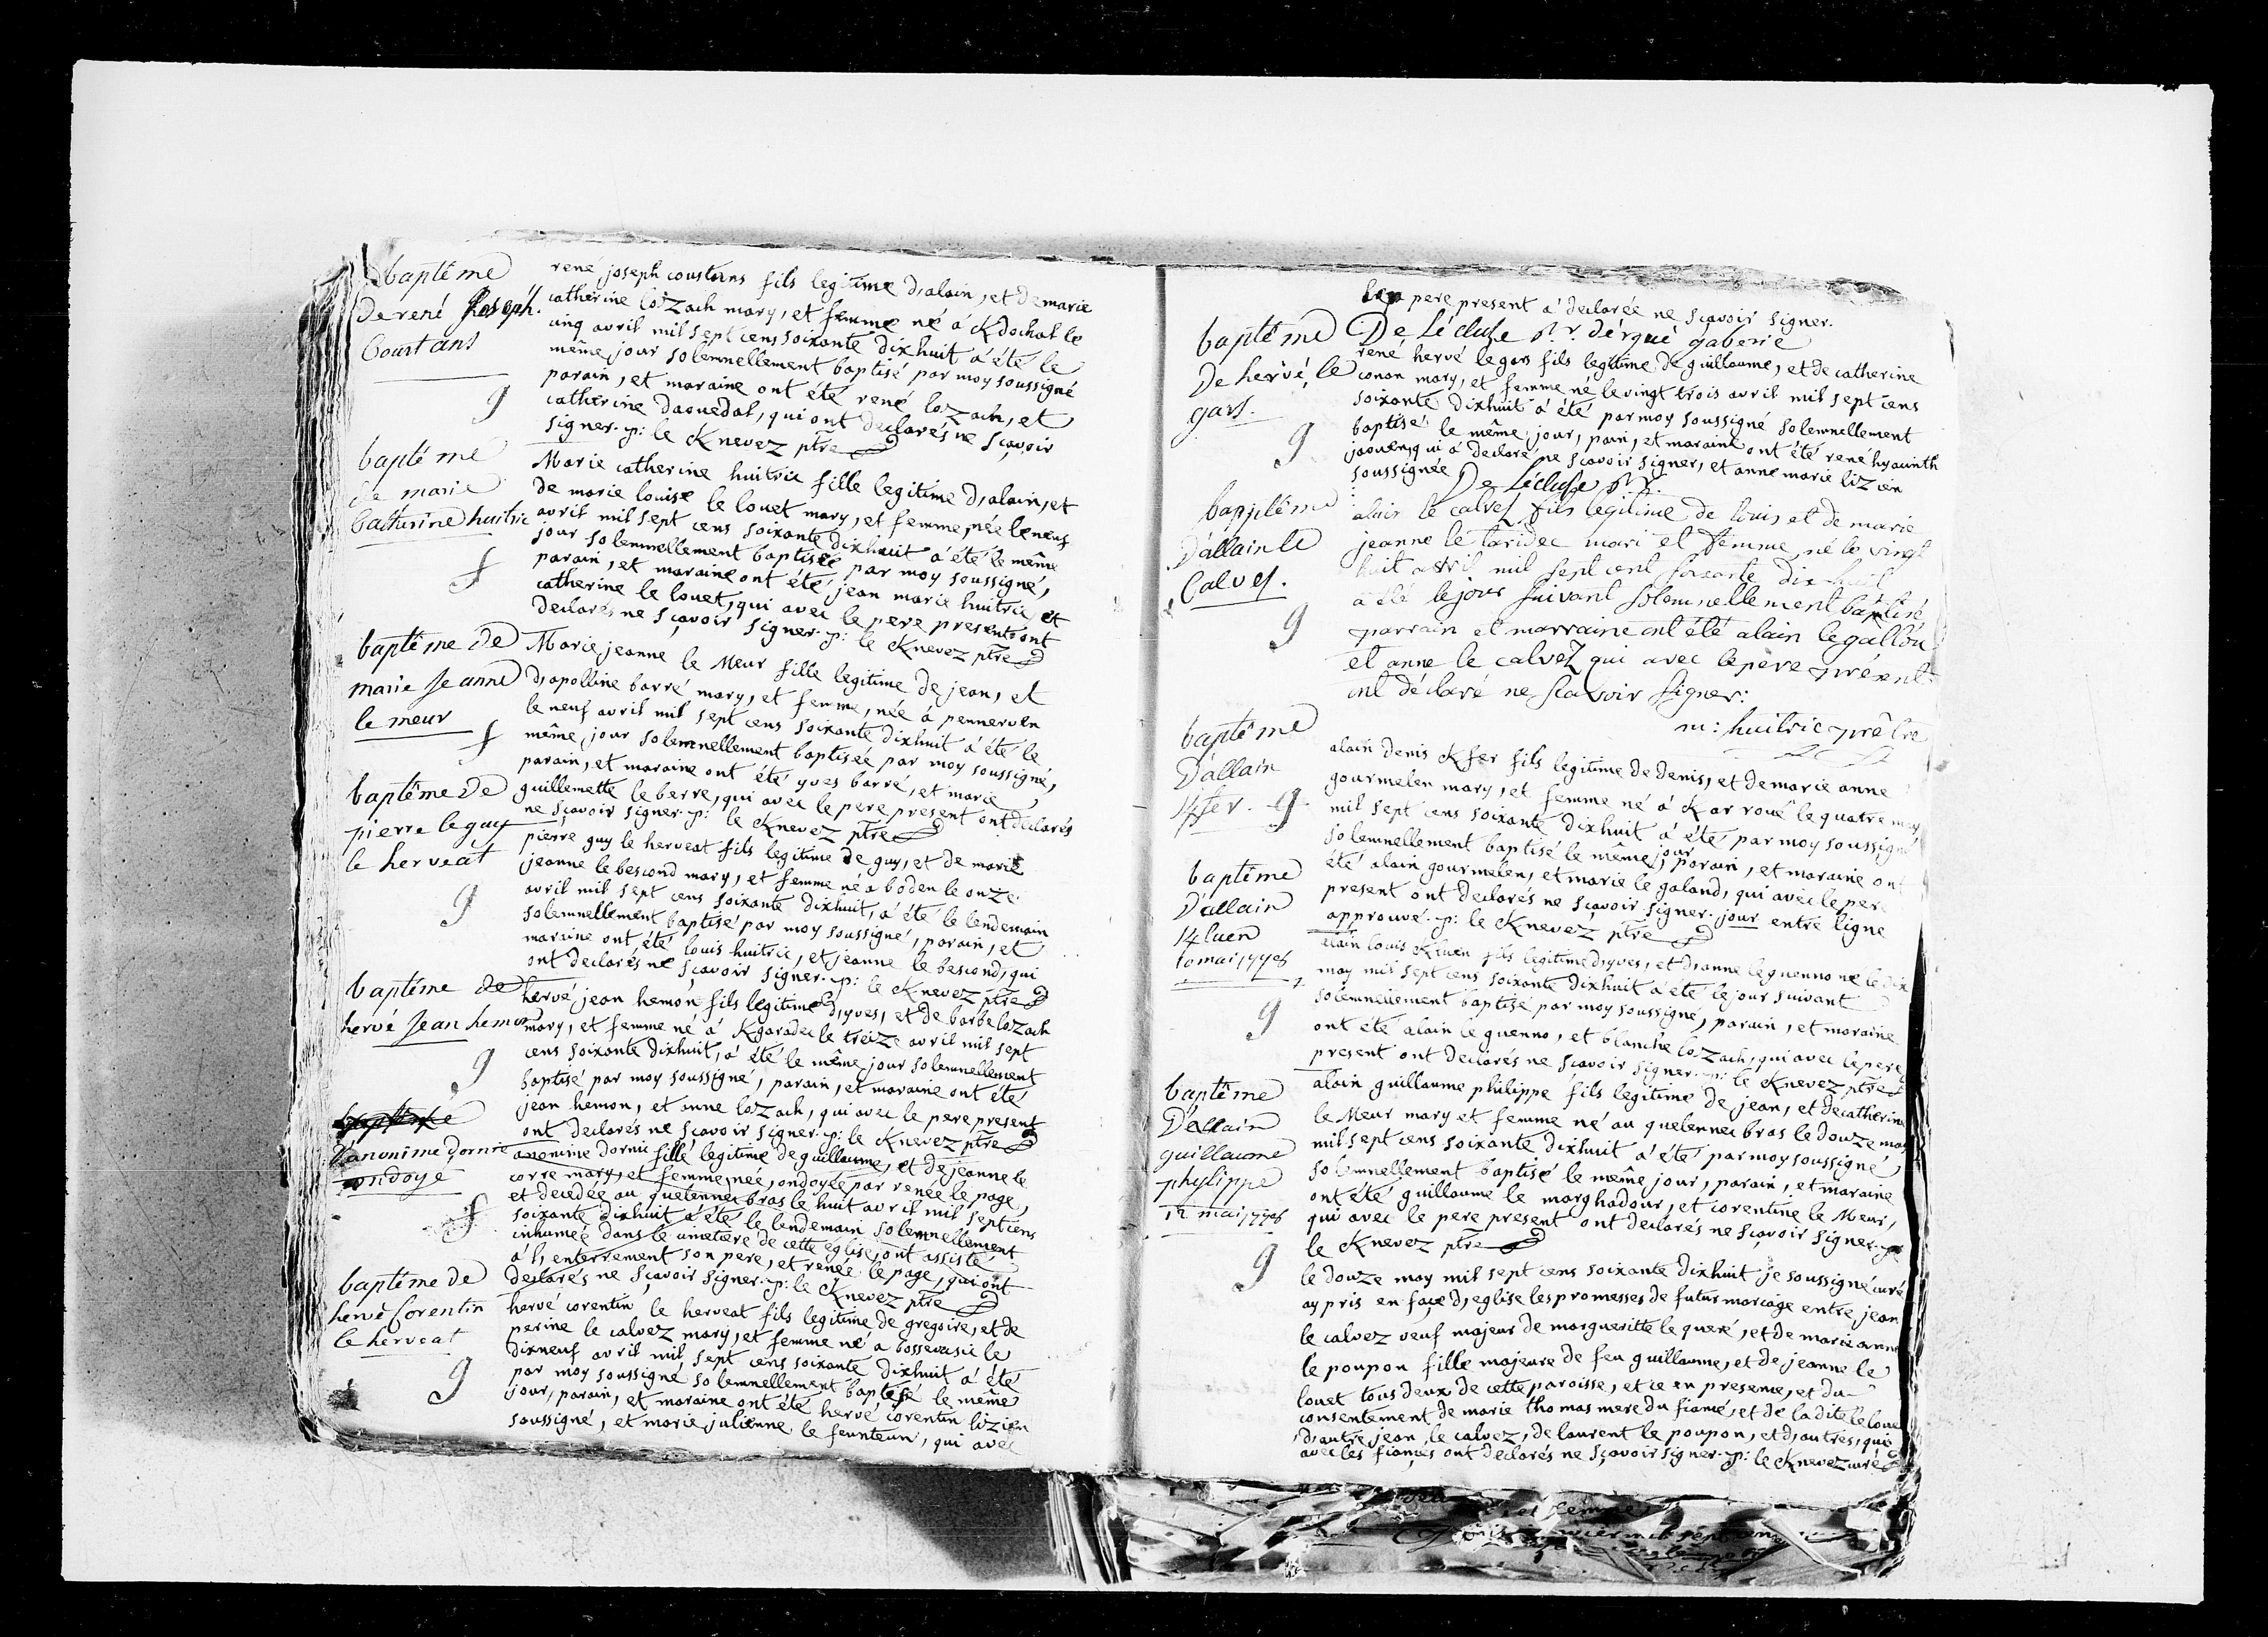 baptême
de rené Joseph
Coustans
g
rene joseph coustans fils legitime d,alain, et de marie
catherine lozach mary, et femme né à Kdochal le
cinq avril mil sept cens soixante dixhuit à été le
même jour solemnellement baptisé par moy soussigné
parain, et maraine ont été rené lozach, et
catherine daouedal, qui ont declarés ne sçavoir
signer. p: le Knevez ptre
baptéme
de marie
Catherine huitric
f
Marie catherine huitric fille legitime d,alain, et
de marie louise le louet mary, et femme, née le neuf
avril mil sept cens soixante dixhuit à été le même
jour solemnellement baptisée par moy soussigné,
parain, et maraine ont été jean marie huitric, et
catherine le louet, qui avec le pere present ont
declarés ne sçavoir signer. p: le Knevez ptre
baptême de
marie Jeanne
le meur
f
Marie jeanne le Meur fille legitime de jean, et
d,apolline barré mary, et femme, née à pennerven
le neuf avril mil sept cens soixante dixhuit à été le
même jour solemnellement baptisée par moy soussigné,
parain, et maraine ont été yves barré, et marie
guillemette le berre, qui avec le pere present ont declarés
ne sçavoir signer. p: le Knevez ptre
baptême de
pierre le guy
le herveat
g
pierre guy le herveat fils legitime de guy, et de marie
jeanne le bescond mary, et femme né a boden le onze
avril mil sept cens soixante dixhuit, à été le lendemain
solemnellement baptisé par moy soussigné, parain, et
maraine ont été louis huitric, et jeanne le bescond, qui
ont declarés ne sçavoir signer. p: le Knevez ptre
baptême de
hervé Jean hemon
g
hervé jean hemon fils legitime d,yves, et de barbe lozach
mary, et femme né à Kgaradec le treize avril mil sept
cens soixante dixhuit, à été le même jour solemnellement
baptisé par moy soussigné, parain, et maraine ont été
jean hemon, et anne lozach, qui avec le pere present
ont declarés ne sçavoir signer. p: le Knevez ptre
D'anonime dornic
ondoyé
f
anonime dornic fille legitime de guillaume, et de jeanne le
corre mary, et femme, née, ondoyée par renée le page,
et decedée au quelennec bras le huit avril mil sept cens
soixante dixhuit à été le lendemain solemnellement
inhumée dans le cimetière de cette église, ont assisté
à l'enterrement son pere, et renée le page, qui ont
declarés ne sçavoir signer. p: le Knevez ptre
baptême de
hervé Corentin
le herveat
g
hervé corentin le herveat fils legitime de gregoire, et de
perine le calvez mary, et femme né à bossevusic le
dixneuf avril mil sept cens soixante dixhuit à été
par moy soussigné solemnellement baptisé le même
jour, parain, et maraine ont été hervé corentin lizien
soussigné, et marie julienne le feunteun, qui avec
le pere present à declarée ne sçavoir signer.
De Lécluse r. d'ergué gaberic
baptême
de hervé le
gars.
g
rené hervé le gars fils legitime de guillaume, et de catherine
conan mary, et femme né le vingt trois avril mil sept cens
soixante dixhuit à été par moy soussigné solemnellement
baptisé le même jour, pain, et maraine ont été rené hyacinth
jaouen, qui à declaré ne sçavoir signer, et anne marie lizien
soussignée De Lécluse r.
baptême
D'allain le
Calvez.
g
alain le calvez fils legitime de louis et de marie
jeanne le taridec mari et femme, né le vingt
huit avril mil sept cent soixante dix-huit
a été le jour suivant solemnellement baptisé
parrain et marraine ont été alain le gallou
et anne le calvez qui avec le pere présent
ont déclaré ne scavoir signer:
m: huitric prêtre
baptême
D'allain
Kfer.
g
alain denis Kfer fils legitime de denis, et de marie anne
gourmelen mary, et femme né à Kar roué le quatre may
mil sept cens soixante dixhuit à été par moy soussigné
solemnellement baptisé le même jour, parain, et maraine ont
été alain gourmelen, et marie le galand, qui avec le pere
present ont declarés ne sçavoir signer. jour entre ligne
approuvé. p: le Knevez ptre
baptême
D'allain
Kluen
10 mai 1778
g
alain louis Kluen fils legitime d,yves, et d,anne le guenno né le dix
may mil sept cens soixante dixhuit à été le jour suivant
solemnellement baptisé par moy soussigné, parain, et maraine
ont été alain le guenno, et blanche lozach, qui avec le pere
present ont declarés ne sçavoir signer. p: le Knevez ptre
baptême
D'allain
guillaume
phylippe
12 mai 1778
g
alain guillaume philippe fils legitime de jean, et de catherine
le Meur mary et femme né au quelennec bras le douze may
mil sept cens soixante dixhuit à été par moy soussigné
solemnellement baptisé le même jour, parain, et maraine
ont été guillaume le marghadour, et corentine le Meur,
qui avec le pere present ont declarés ne sçavoir signer. p:
le Knevez ptre
le douze may mil sept cens soixante dixhuit je soussigné curé
ay pris en façe d,eglise les promesses de futur mariage entre jean
le calvez veuf majeur de margueritte le queré, et de marie anne
le poupon fille majeure de feu guillaume, et de jeanne le
louet tous deux de cette paroisse, et ce en presence, et du
consentement de marie thomas mere du fiancé, et de la dite le louet
d,autre jean le calvez, de laurent le poupon, et d,autres, qui
avec les fiançés ont declarés ne sçavoir signer. p: le Knevez curé